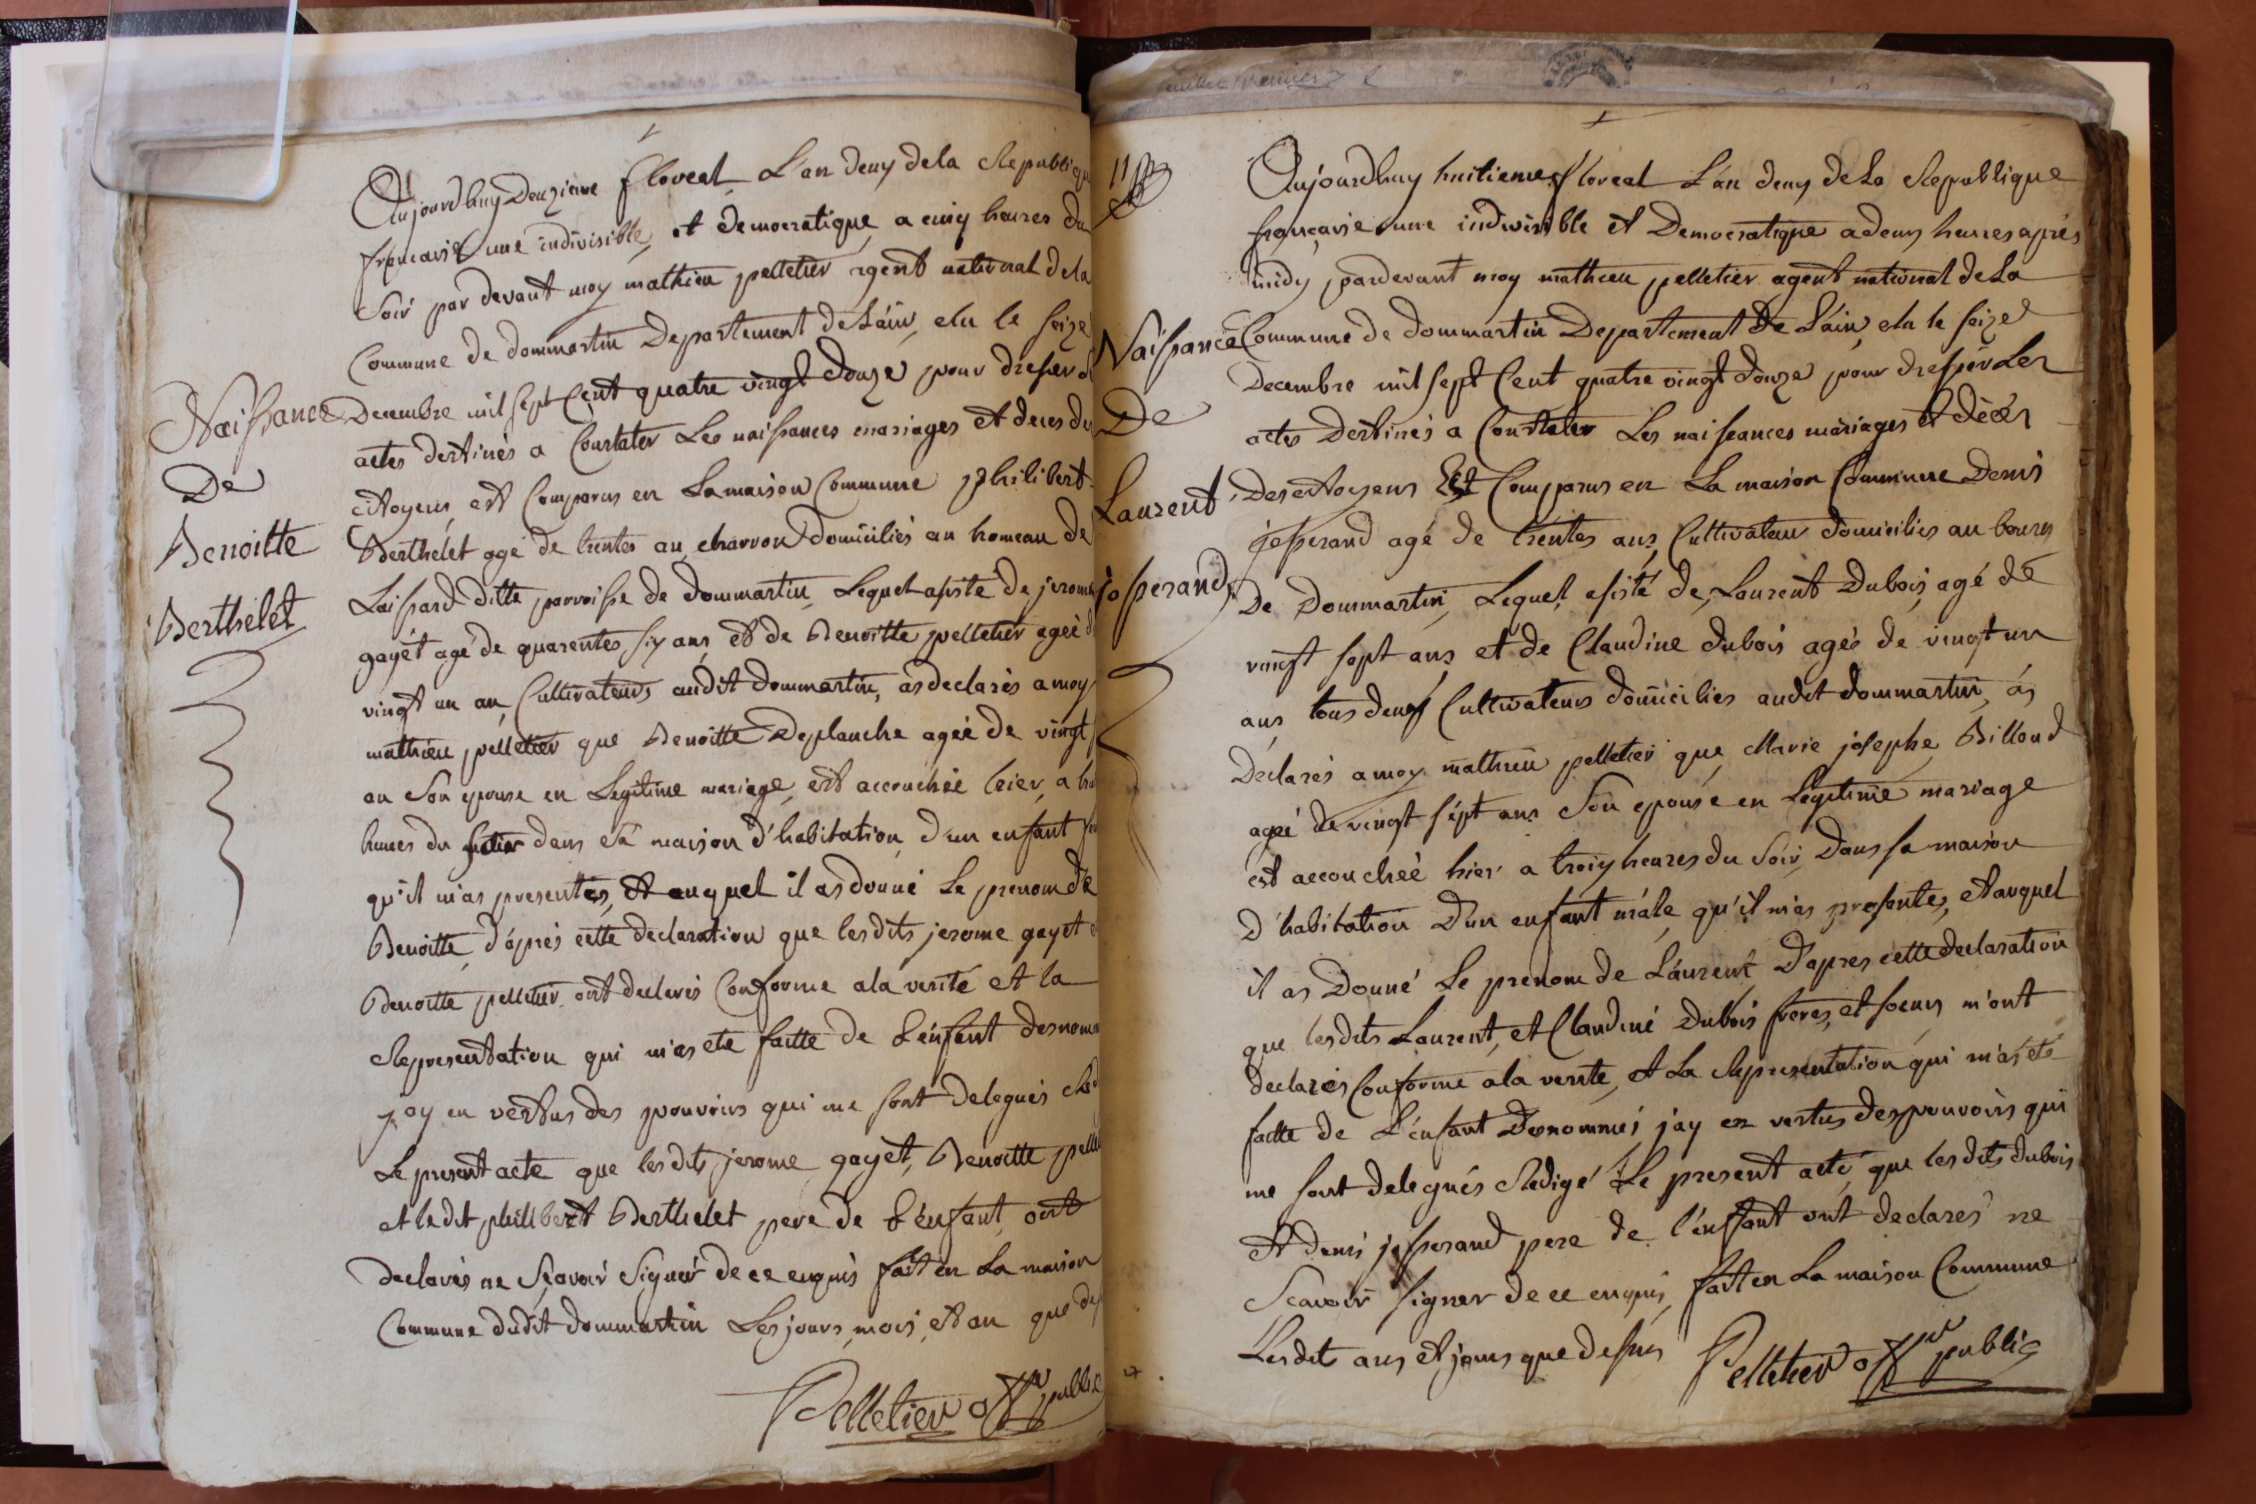 Naissance
De
Benoitte
Berthelet
Aujourdhuy Deuzieme floreal L'an deux dela Republique
francaise une indivisible, et democratique, a cinq heures du
Soir par devant moy mathieu pelletier agent national dela
Commune de dommartin Departement de L'ain, elu le seize
Decembre mil sept Cent quatre vingt douze pour dresser
actes destinés a Constater Les naissances mariages et deces des
citoyens, est Comparus en La maison Commune philibert
Berthelet agé de trentes an charron domiciliés au hameau de
Laissard ditte parroisse de dommartin, Lequel assisté de jerome
gayet agé de quarentes six ans et de Benoitte pelletier ageé
vingt un an, Cultivateurs audit dommartin, as declarés a moy
mathieu pelletier que Benoitte Deplanche ageé de vingt
an Son epouse en Legitime mariage, est accouchée hier, a
heures du dans sa maison d'habitation, d'un enfant
qu'il m'as presentés, et auquel il as donné Le prenom de
Benoitte, d'après cette declaration que lesdits jerome gayet
Benoitte pelletier ont declarés Conforme ala verité et la
Representation qui m'as eté faitte de L'enfant
jay en vertus des pouvoirs qui me sont delegués
Le present acte que les dits jerome gayet, Benoitte
et ledit philibert Berthelet pere de L'enfant, ont
declarés ne sçavoir signér de ce enquis fait en La maison
Commune dudit dommartin Les jours, mois, et an que
Pelletier offer public
feuillet
11
Naissance
De
Laurent
josserand
Aujourdhuy huitieme floreal L'an deux de La Republique
française une indivisible et Democratique a deux heures après
midy, pardevant moy mathieu pelletier agent national de La
Commune de dommartin Departement de L'ain, elu le seize
Decembre mil sept Cent quatre vingt douze pour dresser Les
actes Destinés a Constater Les naissances mariages et décès
Des citoyens Est Comparus en La maison Commune Denis
josserand agé de trentes ans, Cultivateur domiciliés au bourg
De Dommartin, Lequel assisté de, Laurent Dubois, agé de
vingt sept ans et de Claudine dubois agés de vingt un
ans tous deux Cultivateurs domiciliés audit dommartin, as
Declarés a moy mathieu pelletier que, Marie josephe Billoud
ageé de vingt sépt ans Son epouse en Legitime mariage
est accoucheé hier a trois heures du soir, Dans sa maison
D'habitation D'un enfant mâle, qu'il m'as presentés, et auquel
il as Donné Le prenom de Laurent, D'apres cette declaration
que lesdits Laurent, et Claudine Dubois freres, et soeurs m'ont
declarés Conforme ala verite, et La Representation qui m'as eté
faitte de L'enfant Denommés jay en vertus des pouvoirs qui
me sont delegués Redigé Le present acte, que les dits dubois
et denis josserand pere de l'enfant ont declarés ne
Scavoir signer de ce enquis, fait en La maison Commune
Lesdits ans et jours que dessus
Pelletier offer public